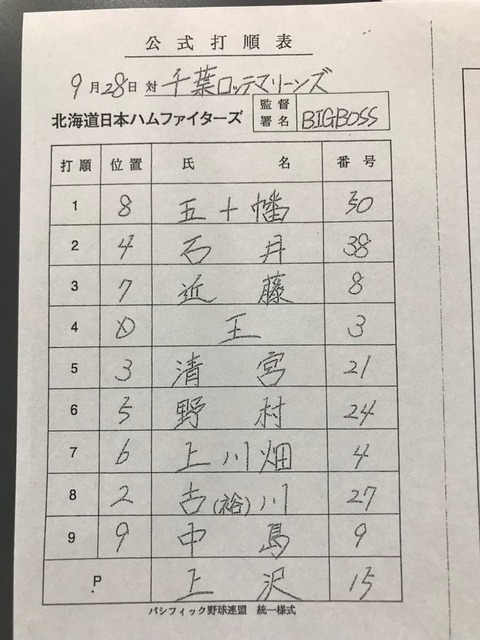 公式打順表
9月28日 対 千葉ロッテマリーンズ
北海道日本ハムファイターズ 監督署名 BIGBOSS
打順 位置 氏名 番号
1 8 五十幡 50
2 4 石井 38
3 7 近藤 8
4 D 王 3
5 3 清宮 21
6 5 野村 24
7 6 上川畑 4
8 2 古(裕)川 27
9 9 中島 9
P 上沢 15
パシフィック野球連盟 統一様式